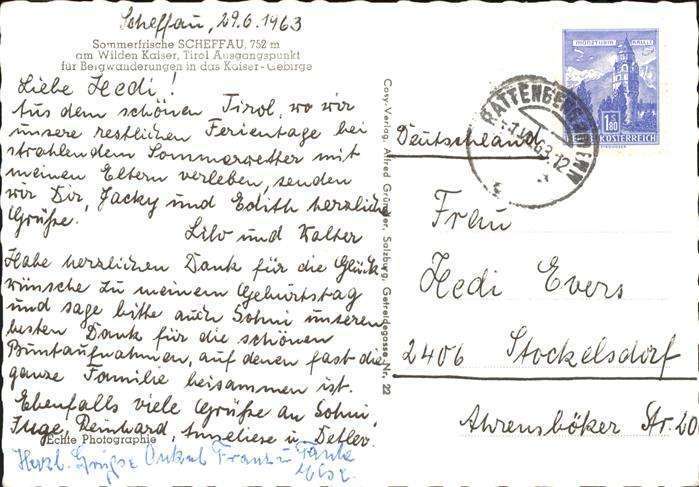 Scheffau, 29.6.1963
Sommerfrische SCHEFFAU, 752 m
am Wilden Kaiser, Tirol Ausgangspunkt
für Bergwanderungen in das Kaiser-Gebirge
Liebe Hedi!
Aus dem schönen Tirol, wo wir
unsere restlichen Ferientage bei
strahlendem Sommerwetter mit
meinen Eltern verleben, senden
wir Dir, Jacky und Edith herzliche
Grüße.
Lilo und Walter
Habe herzlichen Dank für die Glück
wünsche zu meinem Geburtstag
und sage bitte auch Sohni unseren
besten Dank für die schönen
Buntaufnahmen, auf denen fast die
ganze Familie beisammen ist.
Ebenfalls viele Grüße an Sohni,
Inge, Reinhard, Anneliese u. Detlev.
Echte Photographie
Herzl. Grüße Onkel Franz u Tante
Cosy-Verlag, Alfred Gründler, Salzburg, Getreidegasse Nr. 22
MÜNZTURM HALL
S
1.80
REPUBLIK ÖSTERREICH
RATTENBERG
63.12
Deutschland
Frau
Hedi Evers
2406 Stockelsdorf
Ahrensböker Str. 20